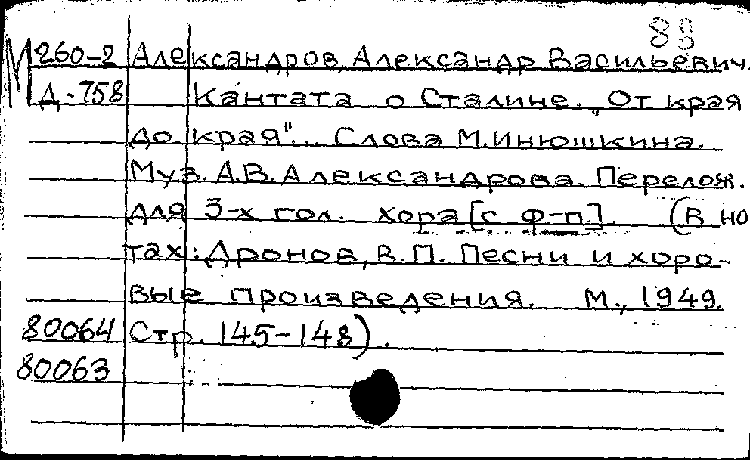 83
М 260-2 Александров, Александр Васильевич.
Д-758 Кантата о Сталине. „От края
до края"... Слова М.Инюшкина.
Муз. А.В.Александрова. Перелож.
для 3-х гол. хора [с ф-п]. (В но
тах: Дронов, В.П. Песни и хоро-
вые произведения. М., 1949.
80064 Стр. 145-148).
80063